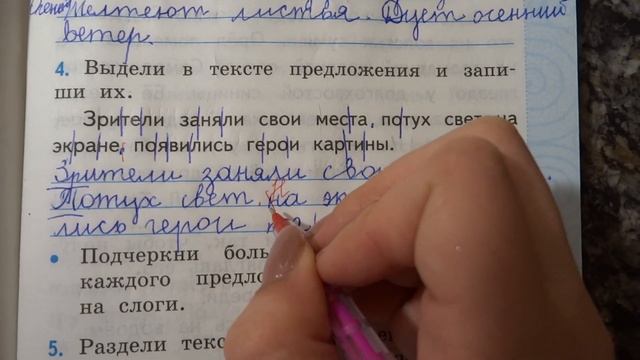 Желтеют листья. Дует осенний
ветер.
4. Выдели в тексте предложения и запи-
ши их.
Зрители заняли свои места, потух свет на
экране, появились герои картины.
Зрители заняли
Потух свет. На
лись герои
• Подчеркни
каждого
на слоги.
5. Раздели